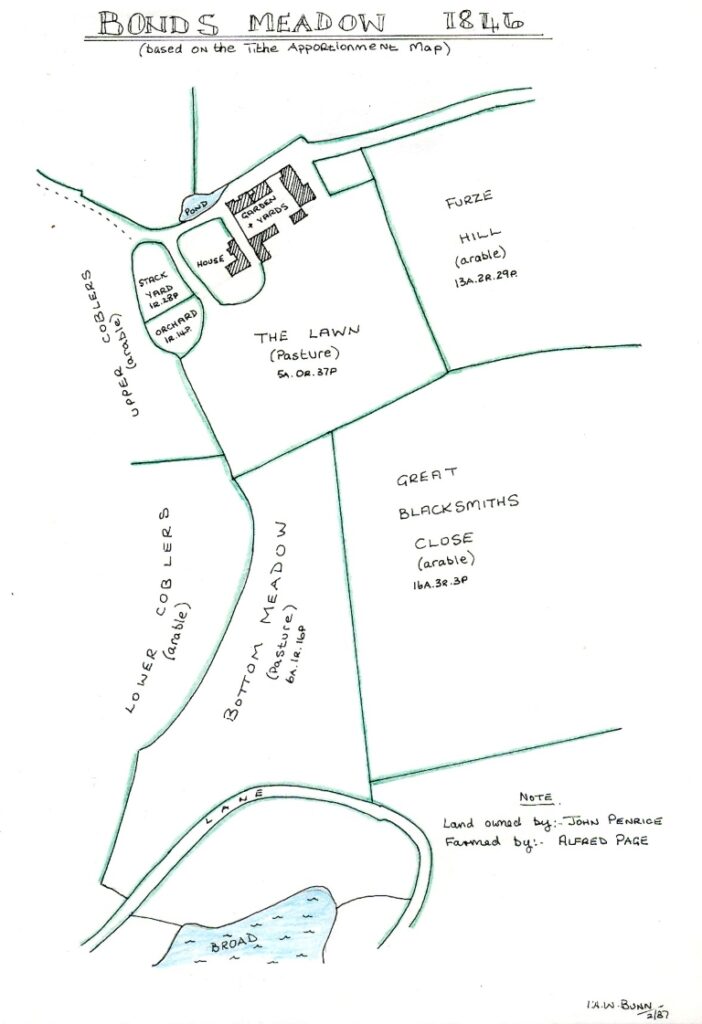 BONDS MEADOW 1846
(based on the Tithe Apportionment Map)
POND
GARDEN
+ YARDS
HOUSE
STACK
YARD
1R.28P
ORCHARD
1R.14P.
UPPER COBLERS
(arable)
FURZE
HILL
(arable)
13A.2R.29P.
THE LAWN
(Pasture)
5A.0R.37P
GREAT
BLACKSMITHS
CLOSE
(arable)
16A.3R.3P
LOWER COBLERS
(arable)
BOTTOM MEADOW
(Pasture)
6A.1R.16P
LANE
NOTE.
Land owned by:- JOHN PENRICE
Farmed by:- ALFRED PAGE
BROAD
I.A.W. BUNN -
2/87